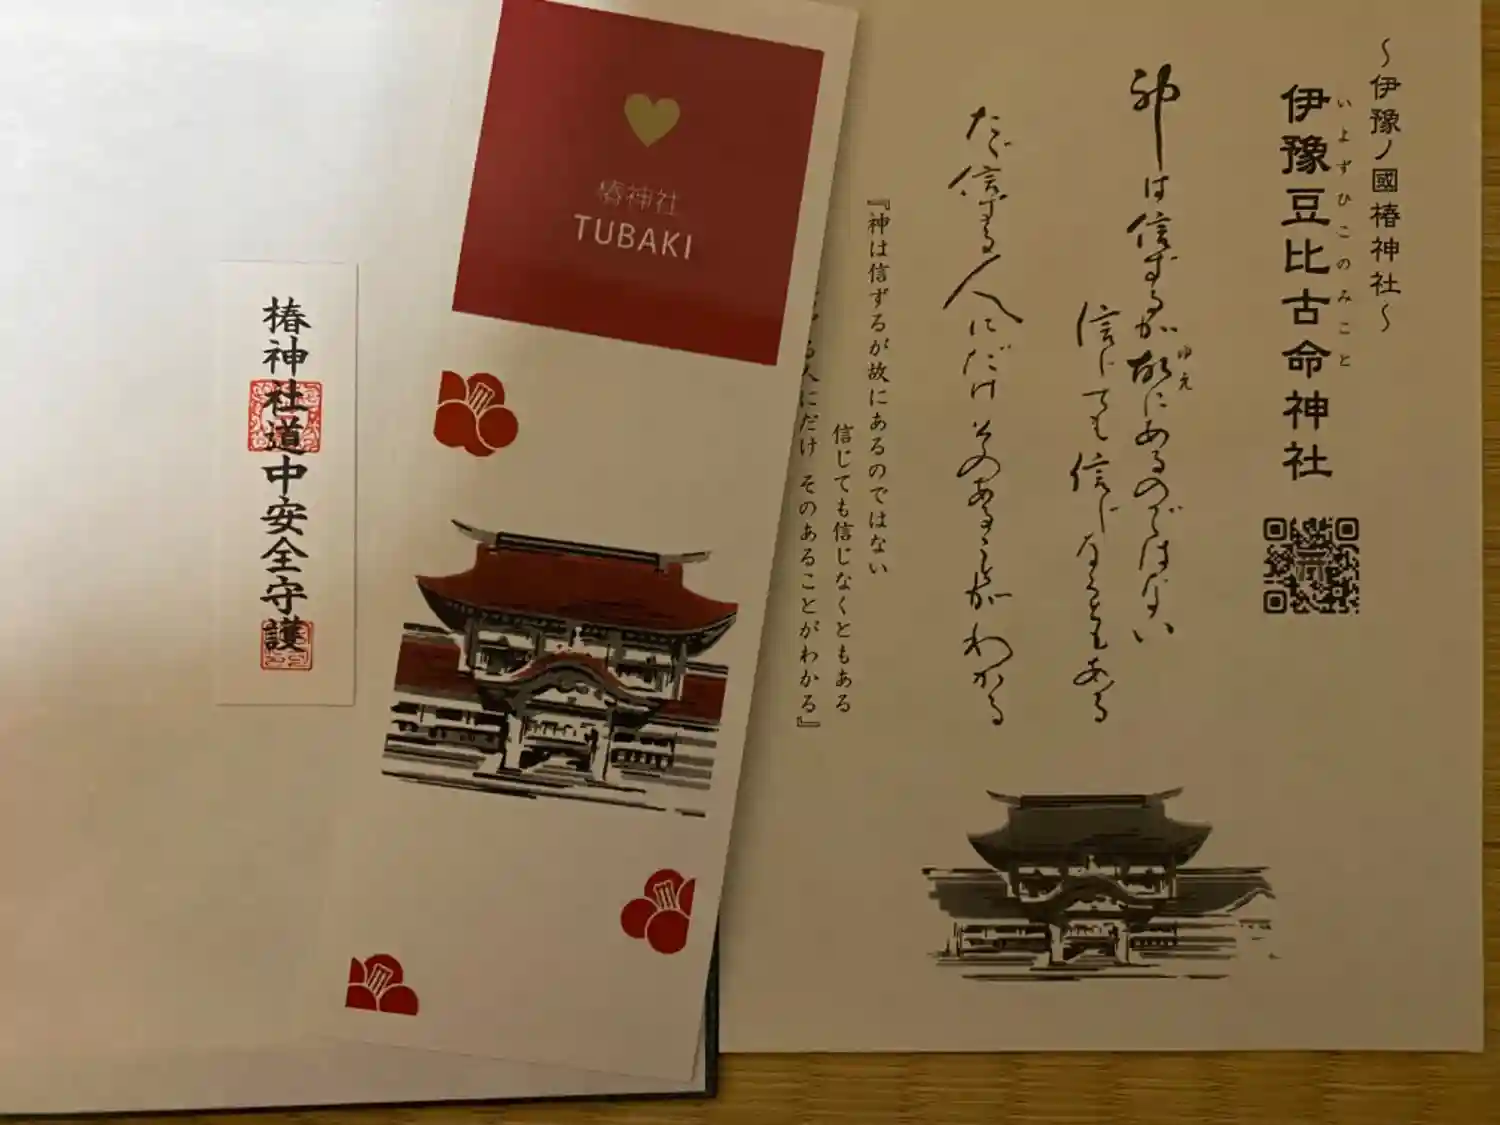 ～伊豫ノ國椿神社～
伊豫豆比古命神社
いよずひこのみこと
神は信ずるが故にあるのではない
ゆえ
信じても信じなくともある
ただ信ずる人にだけそのあることがわかる
『神は信ずるが故にあるのではない
信じても信じなくともある
る人にだけ そのあることがわかる』
椿神社
TUBAKI
椿神社道中安全守護